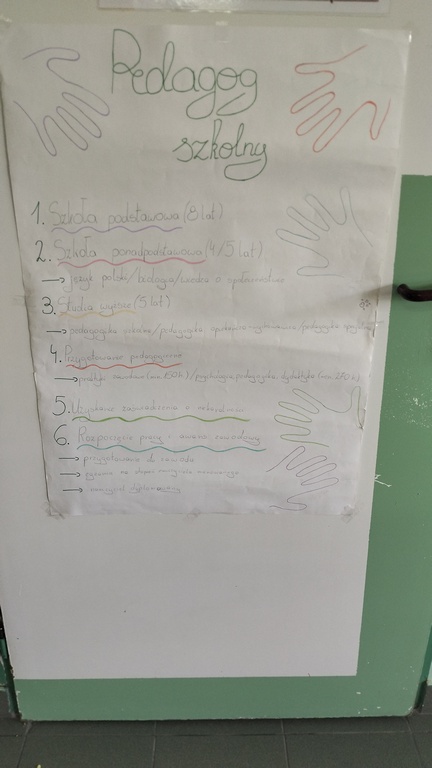 Pedagog
szkolny
1. Szkoła podstawowa (8 lat)
2. Szkoła ponadpodstawowa (4/5 lat)
→ język polski/biologia/wiedza o społeczeństwie
3. Studia wyższe (5 lat)
→ pedagogika szkolna/pedagogika opiekuńczo-wychowawcza/pedagogika
4. Przygotowanie pedagogiczne
→ praktyki zawodowe (min. 150h)/psychologia, pedagogika, dydaktyka (min. 270h)
5. Uzyskanie zaświadczenia o
6. Rozpoczęcie pracy i awans zawodowy
→ przygotowanie do zawodu
→ nauczyciela mianowanego
→ nauczyciel dyplomowany